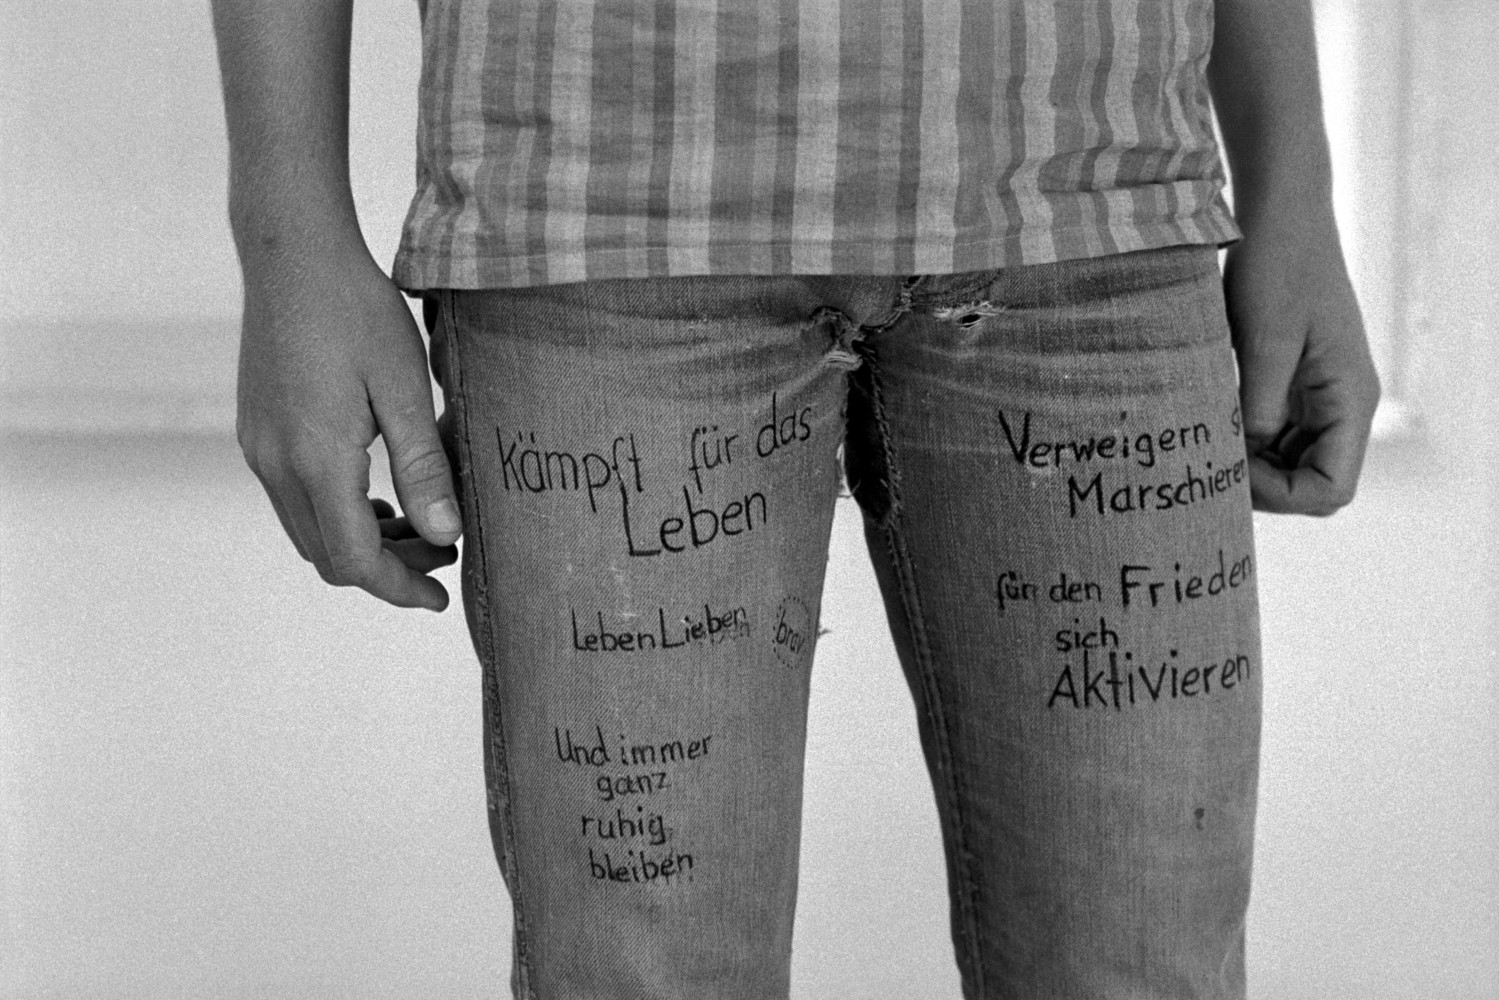 Kämpft für das
Leben
Leben Lieben
brav
Und immer
ganz
ruhig
bleiben
Verweigern
Marschieren
für den Frieden
sich
Aktivieren